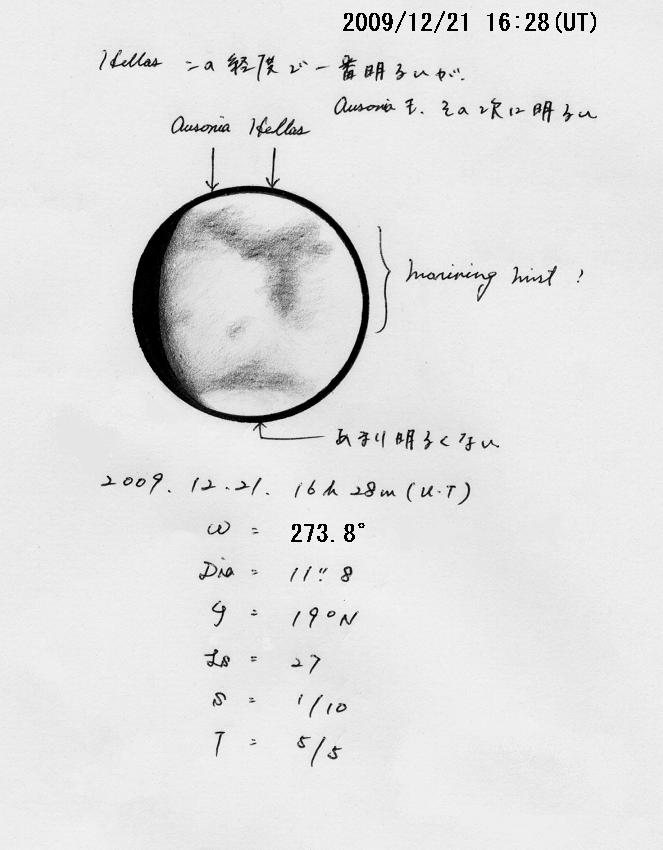 2009/12/21 16:28(UT)
Hellas この経度で一番明るいが、
Ausonia も、その次に明るい
Ausonia Hellas
morining mist ?
あまり明るくない
2009. 12. 21. 16h 28m (U.T)
ω = 273.8°
Dia = 11".8
φ = 19°N
Ls = 27
S = 1/10
T = 5/5